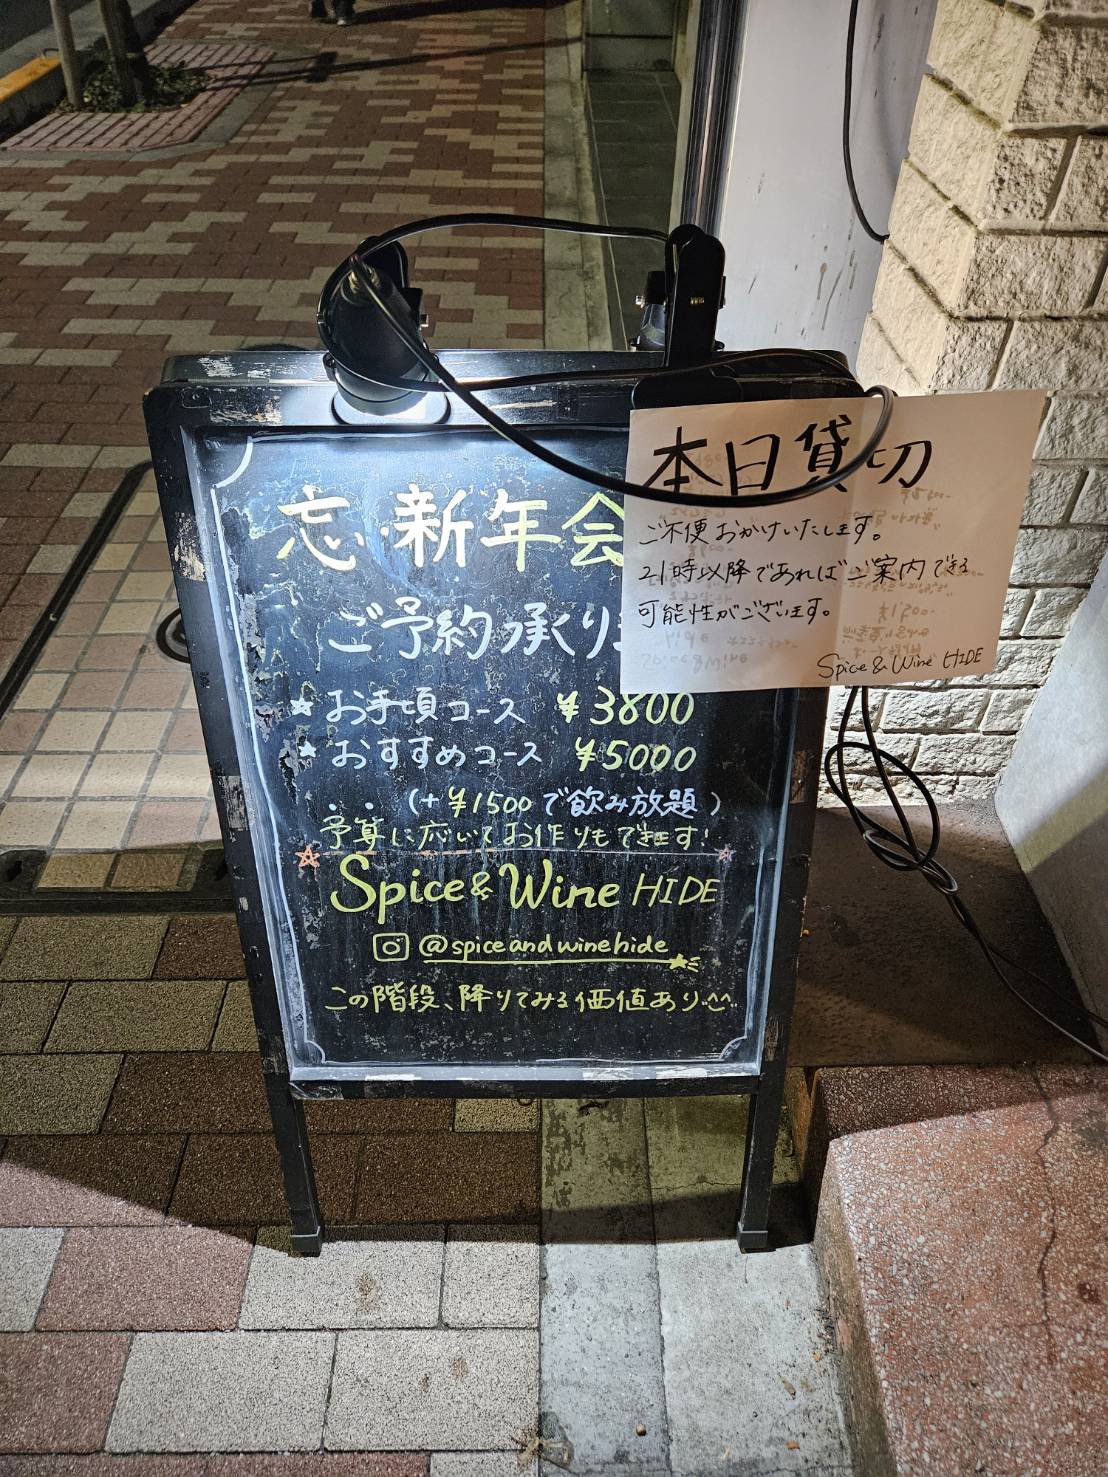 忘・新年会
ご予約承り
☆お手頃コース ¥3800
☆おすすめコース ¥5000
(+¥1500で飲み放題)
予算に応じてお作りもできます!
Spice & Wine HIDE
@spiceandwinehide
この階段、降りてみる価値あり
本日貸切
ご不便おかけいたします。
21時以降であればご案内できる
可能性がございます。
Spice & Wine HIDE